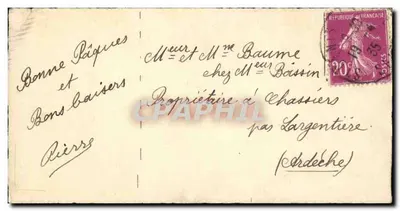 Bonne Pâques
et
Bons baisers
Pierre
Meur et Mme Baume
chez Meur Bassin
Propriétaire à Chassiers
par Largentière
(Ardèche)
REPUBLIQUE FRANÇAISE
20c
CPAPHIL